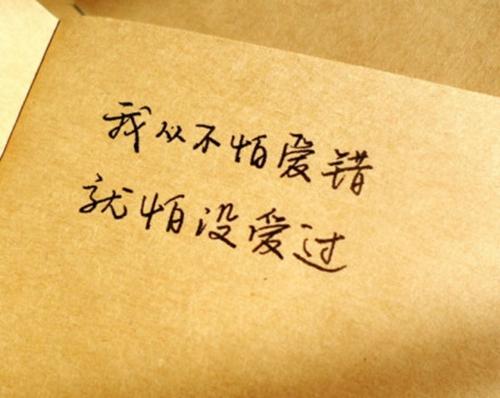 我从不怕爱错
就怕没爱过